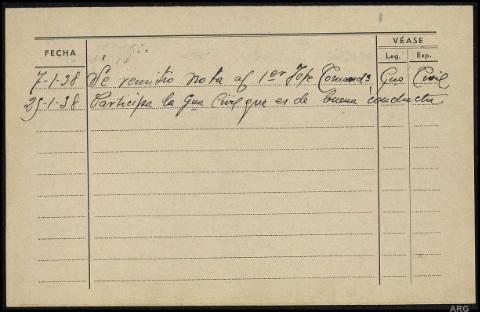 VÉASE
FECHA
Leg. Exp.
7-1-38 Se remitió nota al 1er Jefe Comandª Gua Civil
25-1-38 Participa la Gua Civil que es de buena conducta
ARG